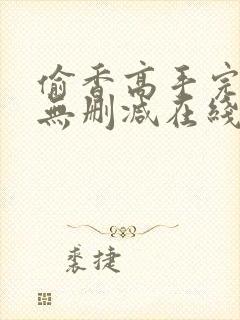 偷香高手完
無刪減在綫
裘捷